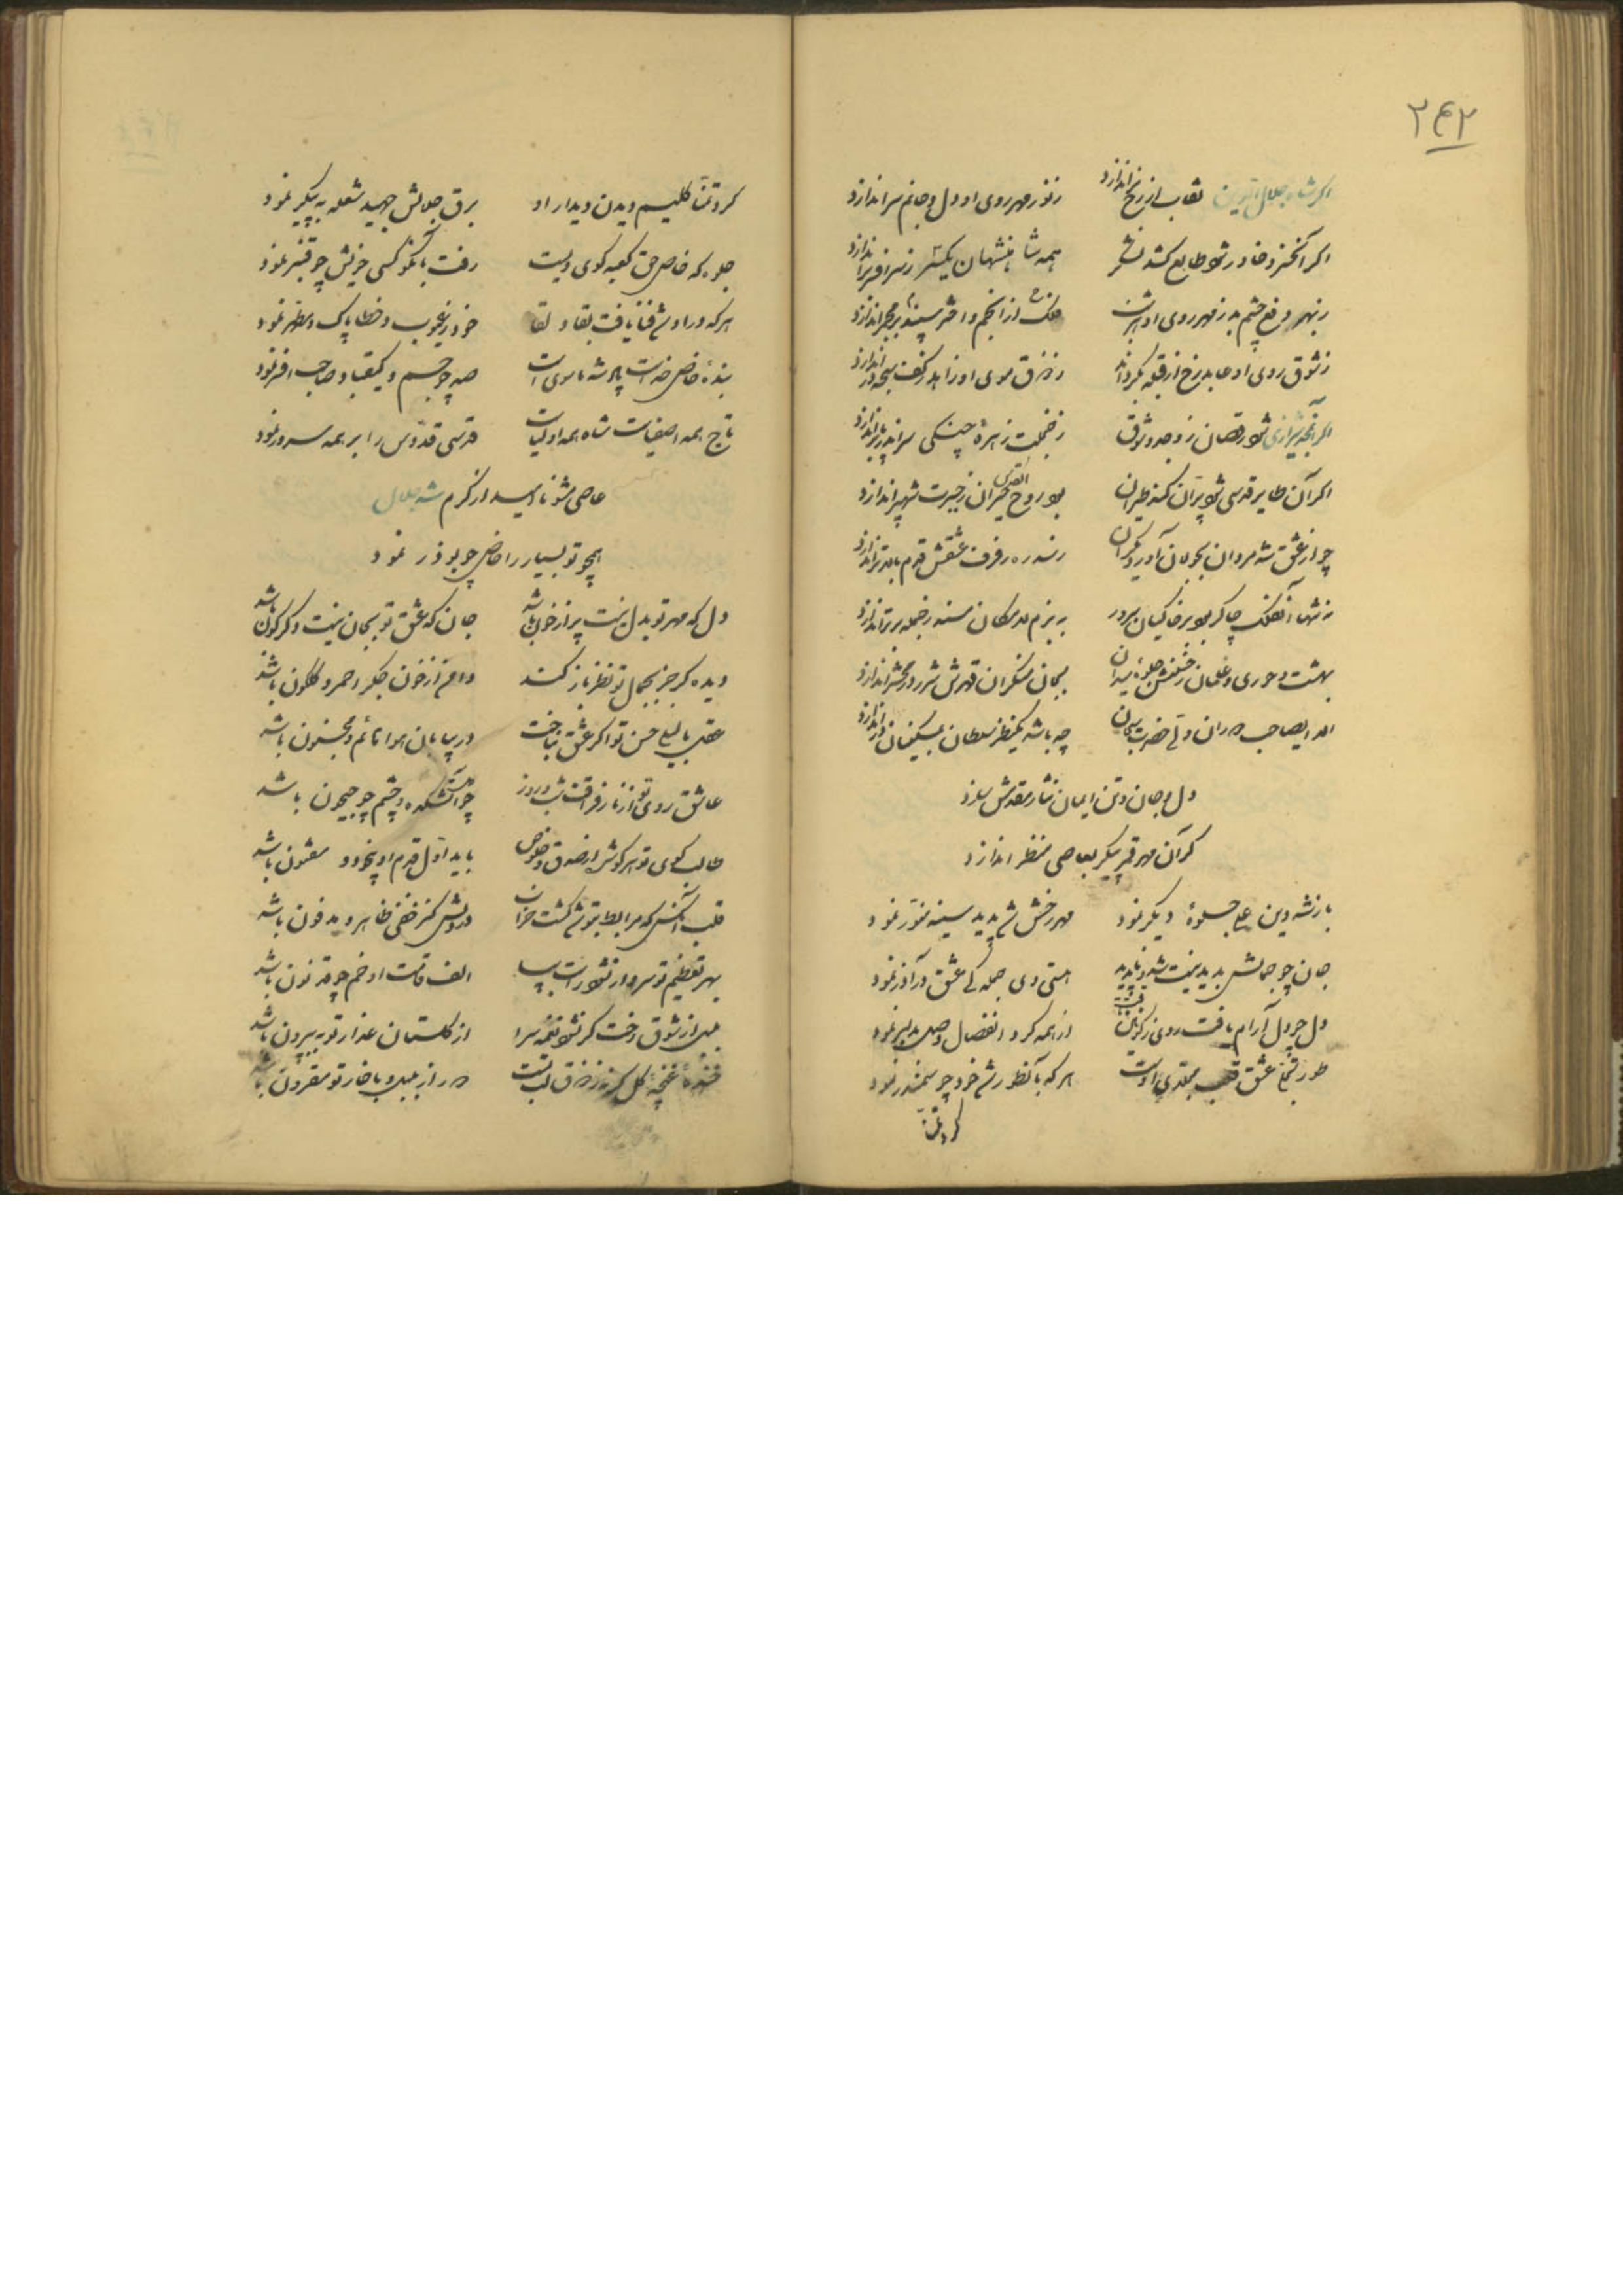 ۲۴۲
اگر شاه جلال الدین نقاب از رخ اندازد
ز نور مهر روی او دل و جانم سر اندازد
اگر آن خسرو خاور شود طالع کشد
همه شاهنشهان یکسر ز سر افسر اندازد
ز بهر دفع چشم بد ز مهر روی او هر شب
فلک از انجم و اختر سپند بر مجمر اندازد
ز شوق روی او عابد رخ از قبله بگرداند
ز ذوق موی او زاهد ز کف سبحه در اندازد
شود رقصان ز وجد و شوق
ز خجلت زهره چنگی سر اندر پا اندازد
اگر آن طایر قدسی شود پران کند طیران
بود روح القدس حیران ز حیرت شهپر اندازد
چو از عشق شه مردان بجولان آورد یکران
رسد رفرف عشقش قدم بالاتر اندازد
نه تنها آن فلک چاکر بود بر خاکیان سرور
به بزم لامکان مسند ز جمله برتر اندازد
بهشت و حوری و غلمان ز خلقش جلوه میدان
بجان منکران قهرش شرر در محشر اندازد
چه باشد یکنظر سلطان بمسکینان در اندازد
دل و جان و تن ایمان نثار مقدمش سازد
گر آن مهر قمر پیکر بعاصی منظر اندازد
باز شه دین علی جلوهٔ دیگر نمود
مهر رخش شد پدید سینه منور نمود
جان چو جمالش بدید نیست شد و ناپدید
هستی وی جمله کی عشق در آذر نمود
دل چو دل آرام یافت روی ز کونین تافت
از همه کرد انفصال وصل بدلبر نمود
طور تجلی عشق قلب مهتدی اوست
هر که بآنطور شد خود چو سمندر نمود
کرد تمنا
کرد تمنا کلیم دیدن دیدار او
برق جلالش جهید شعله به پیکر نمود
جلوه که خاص حق کعبه کوی ولیست
رفت بآنکو کسی خویش چو قنبر نمود
هر که در او شد فنا یافت بقا و لقا
خود ز عیوب و خطا پاک و مطهر نمود
بندهٔ خاص خداست پادشه ماسوی است
صد چو جم و کیقباد صاحب افسر نمود
تاج همه اصفیاست شاه همه اولیاست
قدسی قدوس را بر همه سرور نمود
عاصی مشو ناامید از کرم شه جلال
همچو تو بسیار را خاص چو بوذر نمود
دل که مهر تو بدل نیست پر از خون باشد
جان که عشق تو بجان نیست دگرگون باشد
دیده کر جز بجمال تو نظر باز کند
دائم از خون جگر احمر و گلگون باشد
عقل با لیلی حسن تو اگر عشق نباخت
در بیابان هوا نائم و مجنون باشد
عاشق روی تو از نار فراقت شب و روز
آتشکده و چشم چو جیحون باشد
طالب کوی تو هر کو شد از صدق و خلوص
باید اول قدم او بیخود و مفتون باشد
قلب آنکس که مرابط بتو شد گشت خزان
در دلش کنز خفی ظاهر و مدفون باشد
بهر تعظیم تو سرو ار نشود راست بپا
الف قامت او خم چو قد نون باشد
بلبل از شوق رخت گر نشود نغمه سرا
از گلستان عذار تو به بیرون باشد
خندهٔ غنچهٔ گل گر نه ز ذوق لب تست
دور از بلبل و با خار تو مقرون باشد